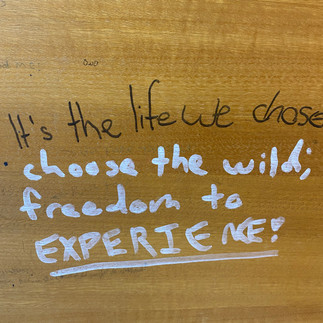 It's the life we chose
choose the wild;
freedom to
EXPERIENCE!